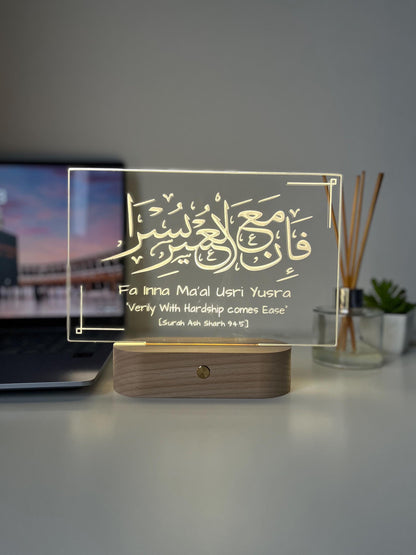 فَإِنَّ مَعَ الْعُسْرِ يُسْرًا
Fa Inna Ma'al Usri Yusra
"Verily With Hardship comes Ease"
[Surah Ash Sharh 94:5]